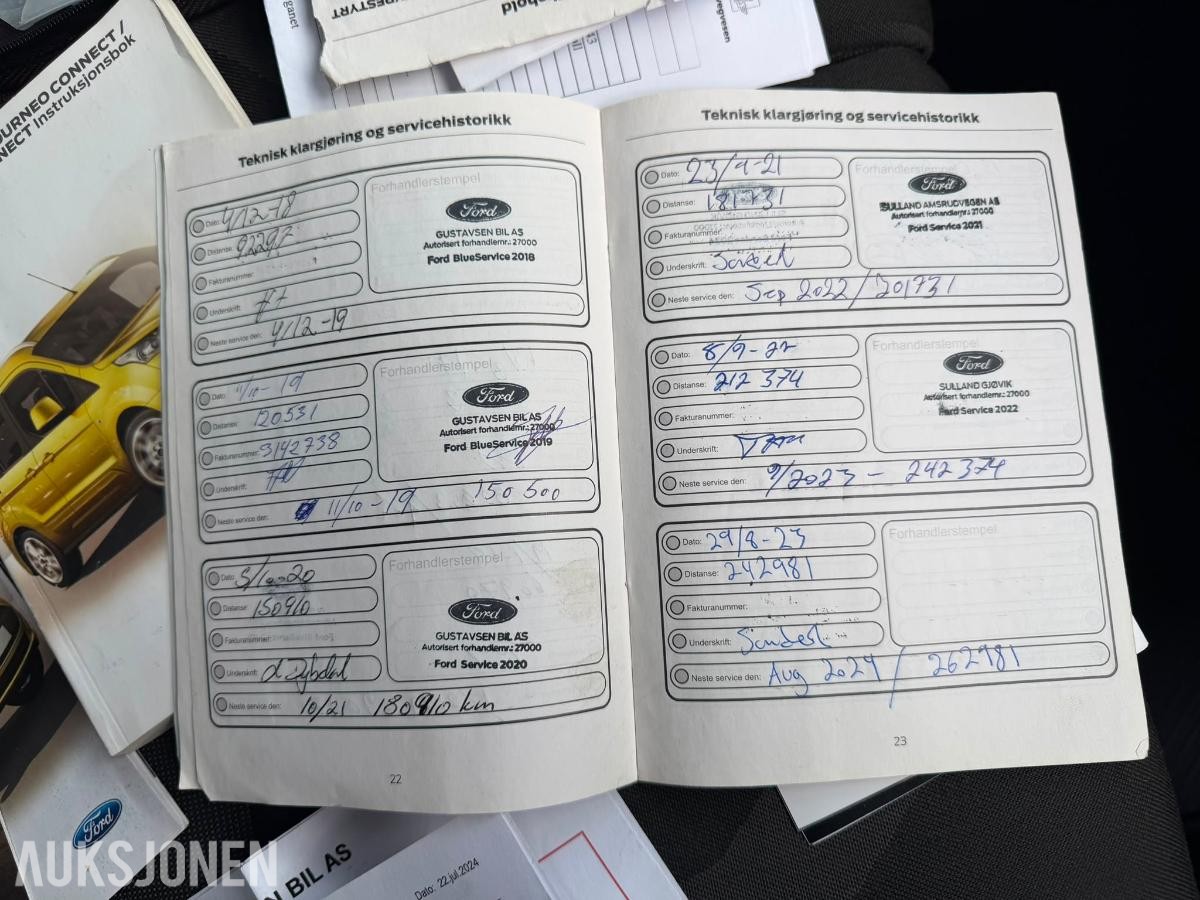 TOURNEO CONNECT /
NNECT Instruksjonsbok
ganet
vegvesen
Teknisk klargjøring og servicehistorikk
Dato: 4/12-18
Distanse: 92297
Fakturanummer:
Underskrift:
Neste service den: 4/12-19
Forhandlerstempel
Ford
GUSTAVSEN BIL AS
Autorisert forhandlernr.: 27000
Ford BlueService 2018
Dato: 11/10-19
Distanse: 120531
Fakturanummer: 3142738
Underskrift:
Neste service den: 11/10-19 150 500
Forhandlerstempel
Ford
GUSTAVSEN BIL AS
Autorisert forhandlernr.: 27000
Ford BlueService 2019
Dato: 5/10-20
Distanse: 150910
Fakturanummer:
Underskrift:
Neste service den: 10/21 180910 km
Forhandlerstempel
Ford
GUSTAVSEN BIL AS
Autorisert forhandlernr.: 27000
Ford Service 2020
22
Teknisk klargjøring og servicehistorikk
Dato: 23/9-21
Distanse: 181731
Fakturanummer:
Underskrift:
Neste service den: Sep 2022/201731
Forhandlerstempel
Ford
SULLAND AMSRUDVEGEN AS
Autorisert forhandlernr.: 27000
Ford Service 2021
Dato: 8/9-22
Distanse: 212 374
Fakturanummer:
Underskrift:
Neste service den: 9/2023 - 242 374
Forhandlerstempel
Ford
SULLAND GJØVIK
Autorisert forhandlernr.: 27000
Ford Service 2022
Dato: 29/8-23
Distanse: 242981
Fakturanummer:
Underskrift:
Neste service den: Aug 2024 / 262981
Forhandlerstempel
23
Ford
N BIL AS
Dato: 22.jul.2024
AUKSJONEN